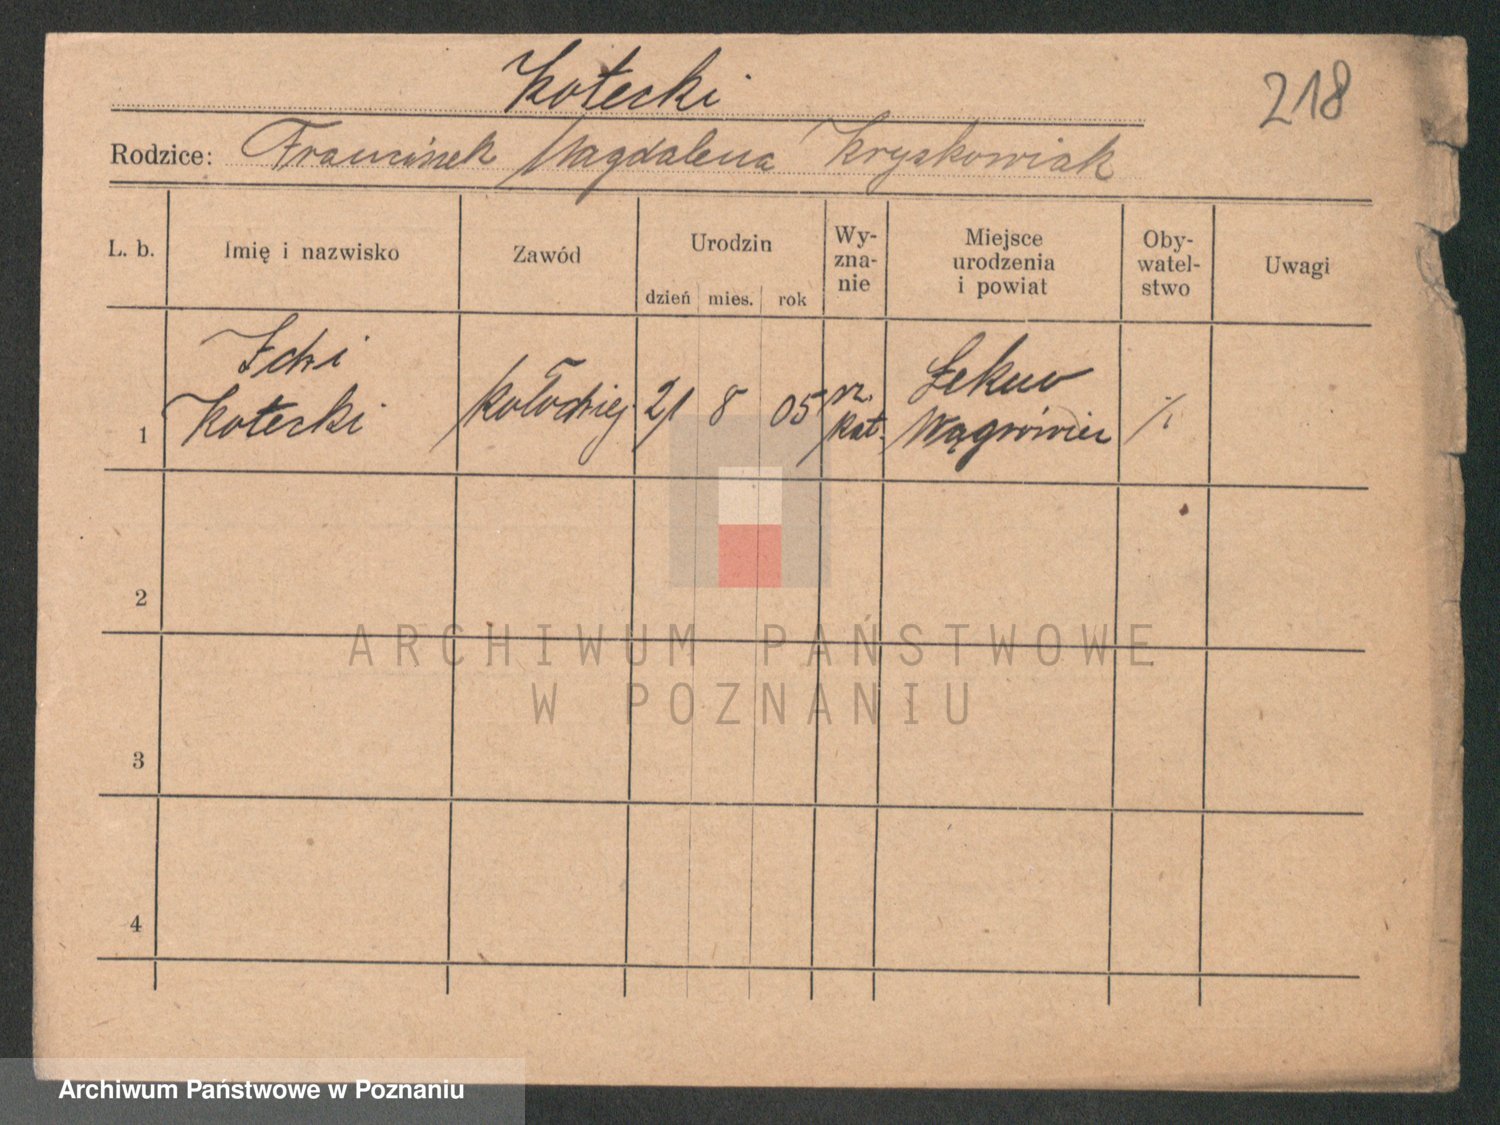 Kotecki
218
Rodzice: Franciszek Magdalena Kryskowiak
L. b.
Imię i nazwisko
Zawód
Urodzin
dzień mies. rok
Wy-
zna-
nie
Miejsce
urodzenia
i powiat
Oby-
watel-
stwo
Uwagi
1
Kotecki
kołodziej
21 8 05
rz.
kat.
Wągrówiec
·/·
2
3
4
ARCHIWUM PAŃSTWOWE
W POZNANIU
Archiwum Państwowe w Poznaniu